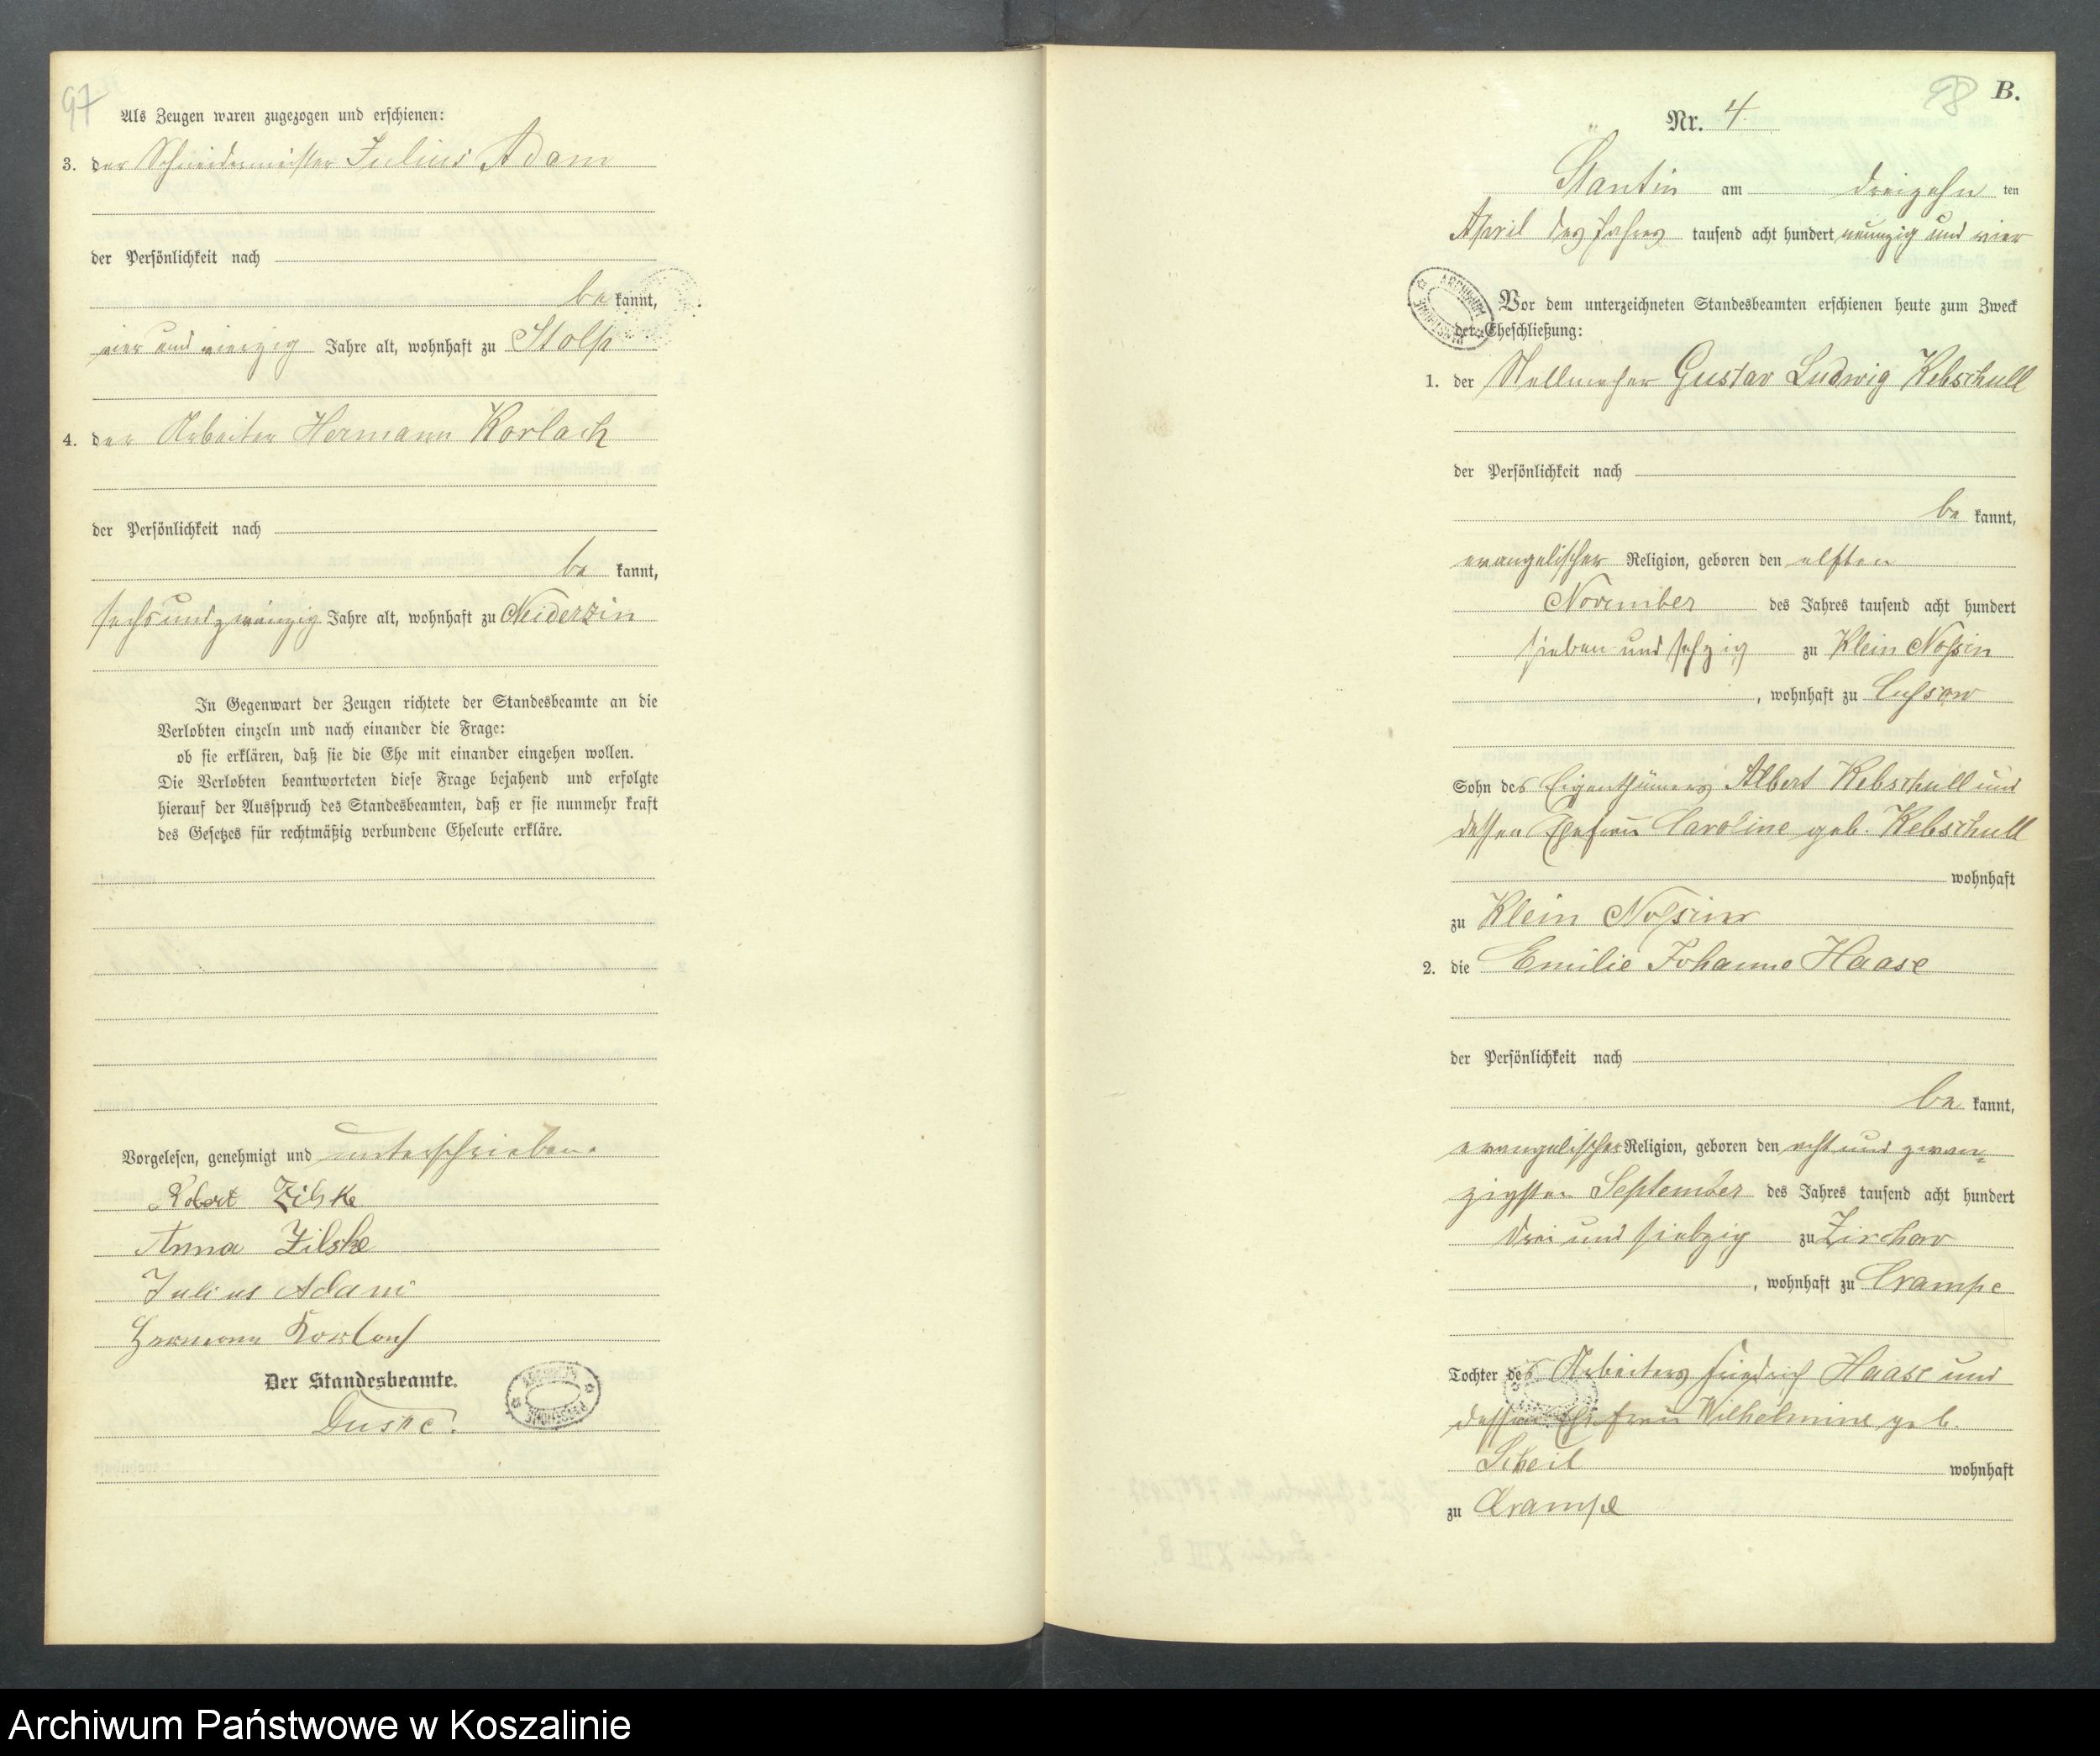 97
Als Zeugen waren zugezogen und erschienen:
3. der Schneidermeister Julius Adam
der Persönlichkeit nach
be kannt,
vier und vierzig Jahre alt, wohnhaft zu Stolp
4. der Arbeiter Hermann Korlach
der Persönlichkeit nach
be kannt,
sechs und zwanzig Jahre alt, wohnhaft zu Neiderzin
In Gegenwart der Zeugen richtete der Standesbeamte an die
Verlobten einzeln und nach einander die Frage:
ob sie erklären, daß sie die Ehe mit einander eingehen wollen.
Die Verlobten beantworteten diese Frage bejahend und erfolgte
hierauf der Ausspruch des Standesbeamten, daß er sie nunmehr kraft
des Gesetzes für rechtmäßig verbundene Eheleute erkläre.
Vorgelesen, genehmigt und unterschrieben.
Robert Zilske
Anna Zilske
Julius Adam
Hermann Korlach
Der Standesbeamte.
98 B.
Nr. 4.
Stantin am dreizehn ten
April des Jahres tausend acht hundert neunzig und vier
Vor dem unterzeichneten Standesbeamten erschienen heute zum Zweck
der Eheschließung:
1. der Stellmacher Gustav Ludwig Kebschull
der Persönlichkeit nach
be kannt,
evangelischer Religion, geboren den elften
November des Jahres tausend acht hundert
sieben und sechzig zu Klein Nossin
, wohnhaft zu Lussow
Sohn des Eigenthümers Albert Kebschull und
dessen Ehefrau Caroline geb. Kebschull
wohnhaft
zu Klein Nossin
2. die Emilie Johanne Haase
der Persönlichkeit nach
be kannt,
evangelischer Religion, geboren den acht und zwan=
zigsten September des Jahres tausend acht hundert
drei und siebzig zu Zirchow
, wohnhaft zu Crampe
Tochter des Arbeiters Friedrich Haase und
dessen Ehefrau Wilhelmine geb.
Scheil wohnhaft
zu Crampe
Archiwum Państwowe w Koszalinie